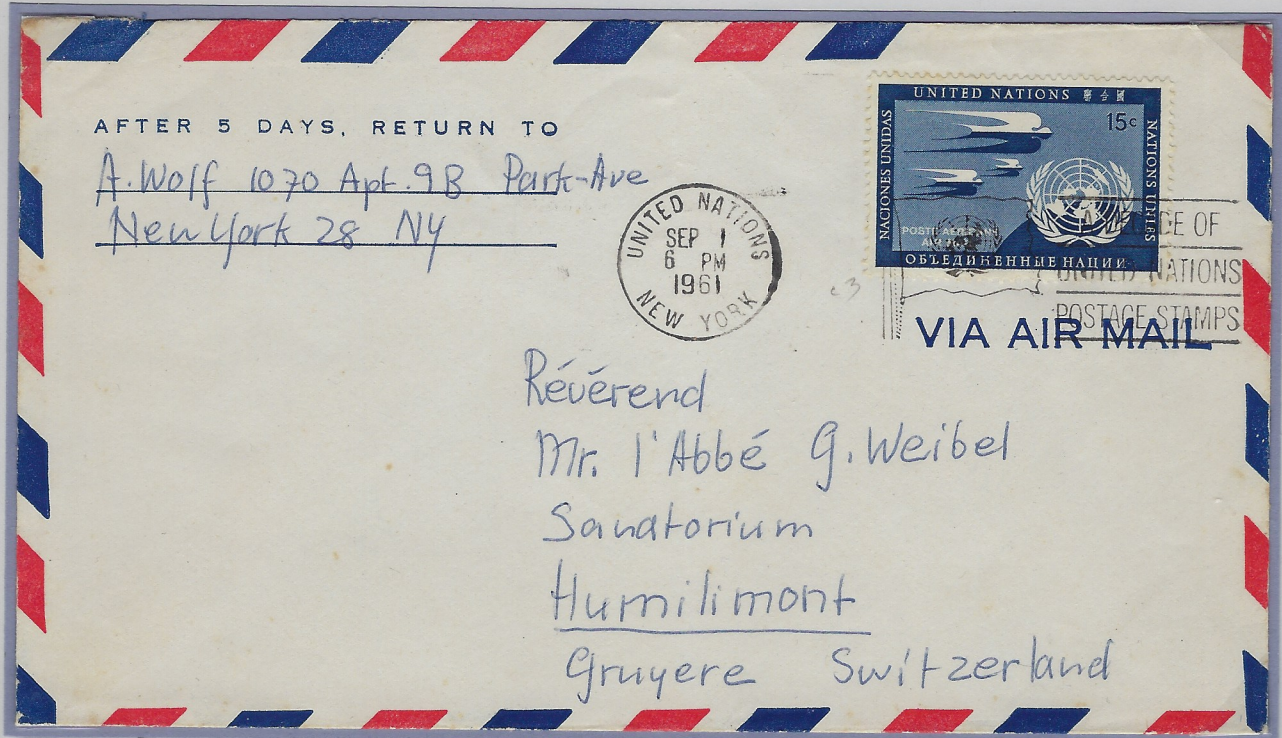 AFTER 5 DAYS, RETURN TO
A. Wolf 1070 Apt. 9B Park-Ave
New York 28 NY
UNITED NATIONS
SEP 1
6 PM
1961
NEW YORK
UNITED NATIONS
15c
NACIONES UNIDAS
NATIONS UNIES
ОБЪЕДИНЕННЫЕ НАЦИИ
A DECADE OF
UNITED NATIONS
POSTAGE STAMPS
VIA AIR MAIL
c3
Révérend
Mr. l'Abbé G. Weibel
Sanatorium
Humilimont
Gruyere Switzerland